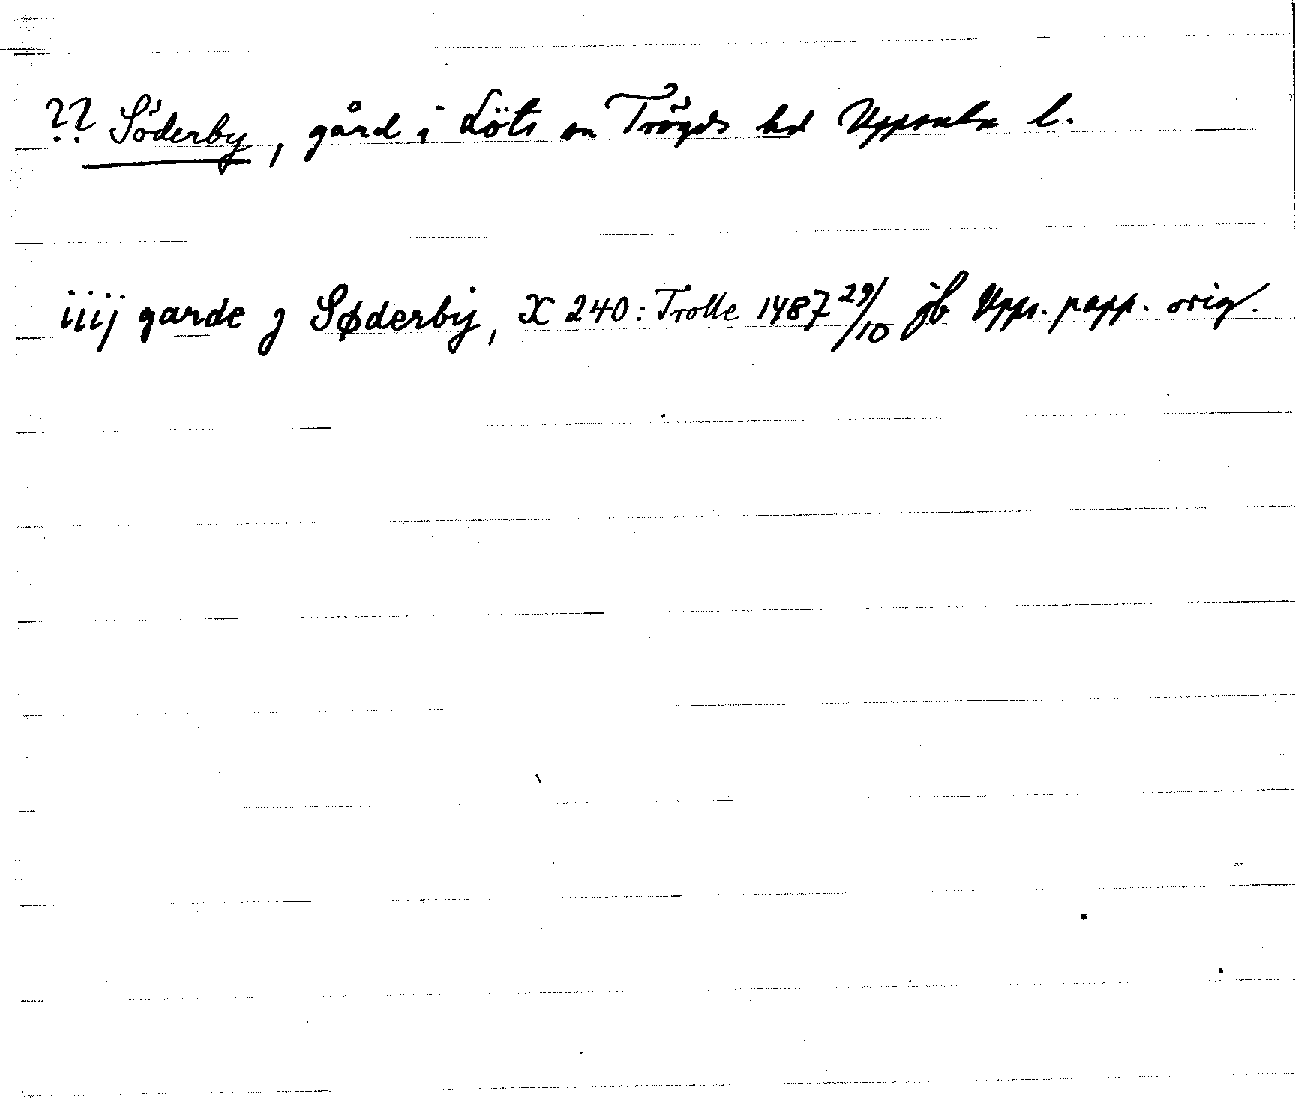 ?? Söderby, gård i Löts sn Trögds hd Uppsala l.
iiij garde j Søderby, X 240: Trolle 1487 29/10 jb Upps. papp. orig.